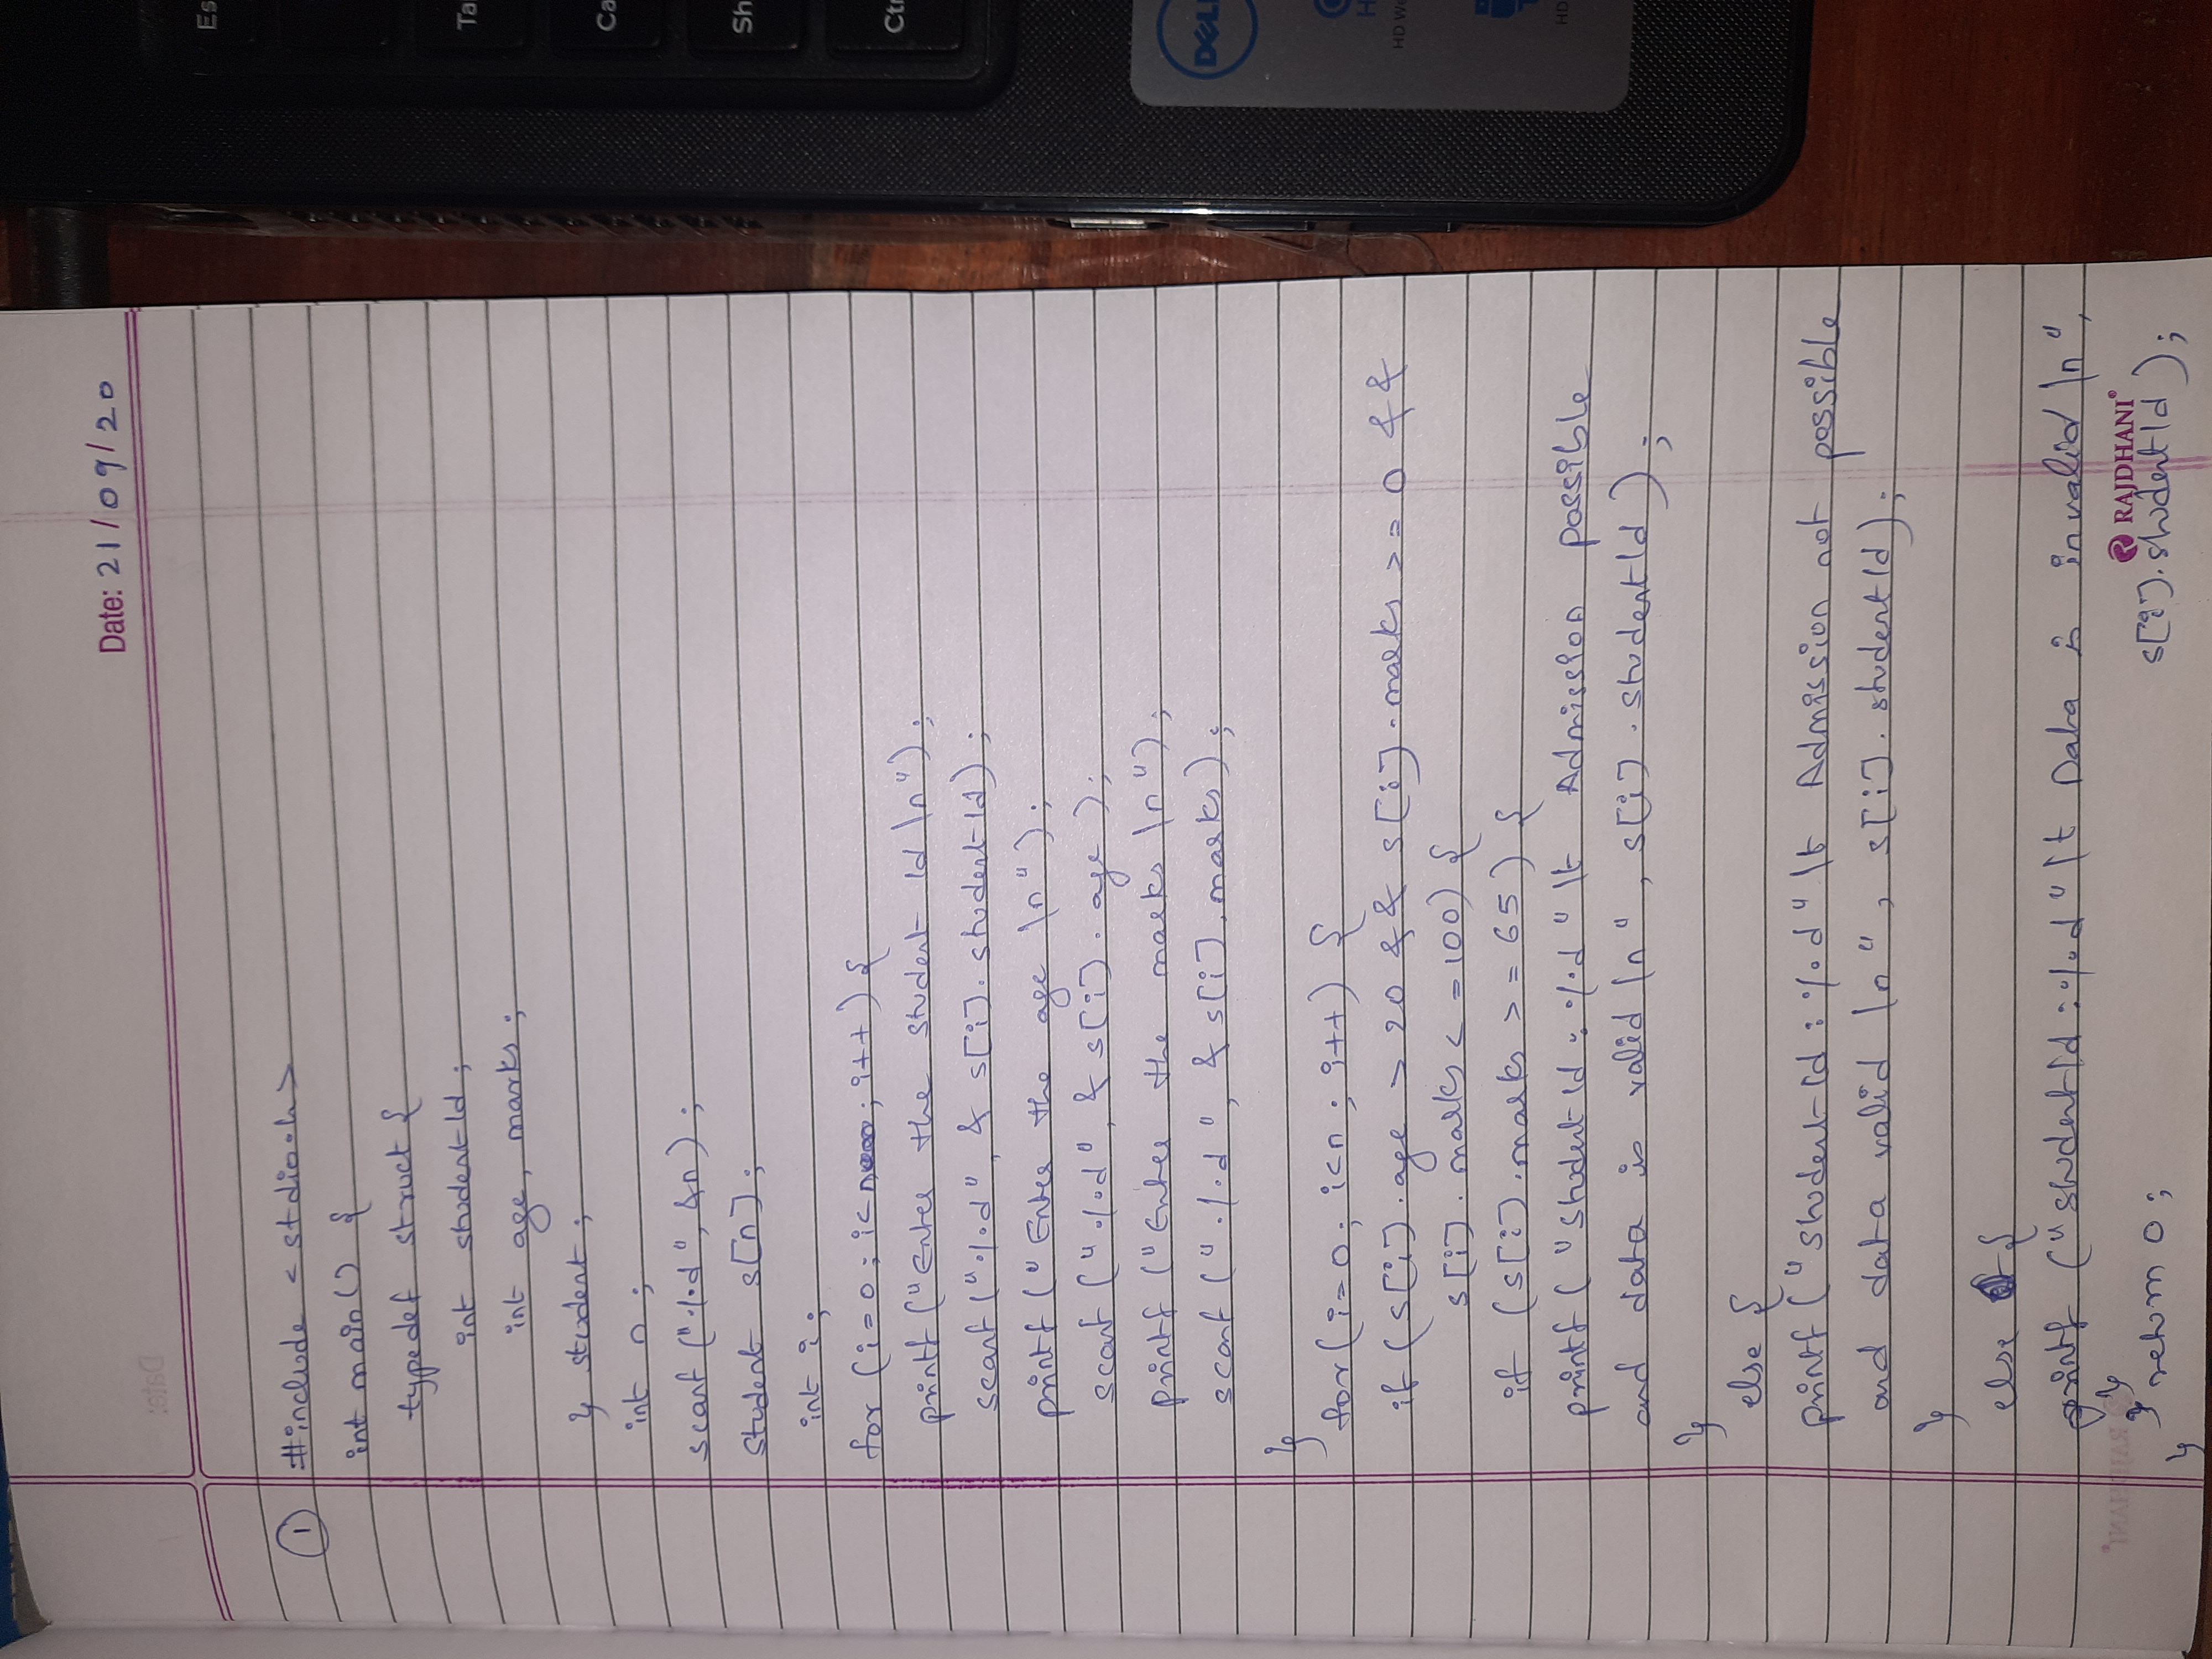 Date: 21/09/20
① #include <stdio.h>
int main() {
typedef struct {
int studentId;
int age, marks;
} student;
int n;
scanf ("%d", &n);
student s[n];
int i;
for (i=0; i<n; i++) {
printf ("Enter the student Id \n");
scanf ("%d", & s[i].studentId);
printf ("Enter the age \n");
scanf ("%d", & s[i].age );
printf ("Enter the marks \n");
scanf ("%d", & s[i].marks);
}
for(i=0; i<n; i++) {
if (s[i].age > 20 && s[i].marks >= 0 &&
s[i].marks <=100) {
if (s[i].marks >= 65) {
printf ("StudentId : %d" \t Admission possible
and data is valid \n", s[i].studentId );
}
else {
printf ("StudentId : %d" \t Admission not possible
and data valid \n", s[i].studentId);
}
else {
printf ("studentId : %d" \t Data is invalid \n",
s[i].studentId );
}
} return 0;
}
RAJDHANI®
Es
Ta
Ca
Sh
Ctr
DELL
HD We